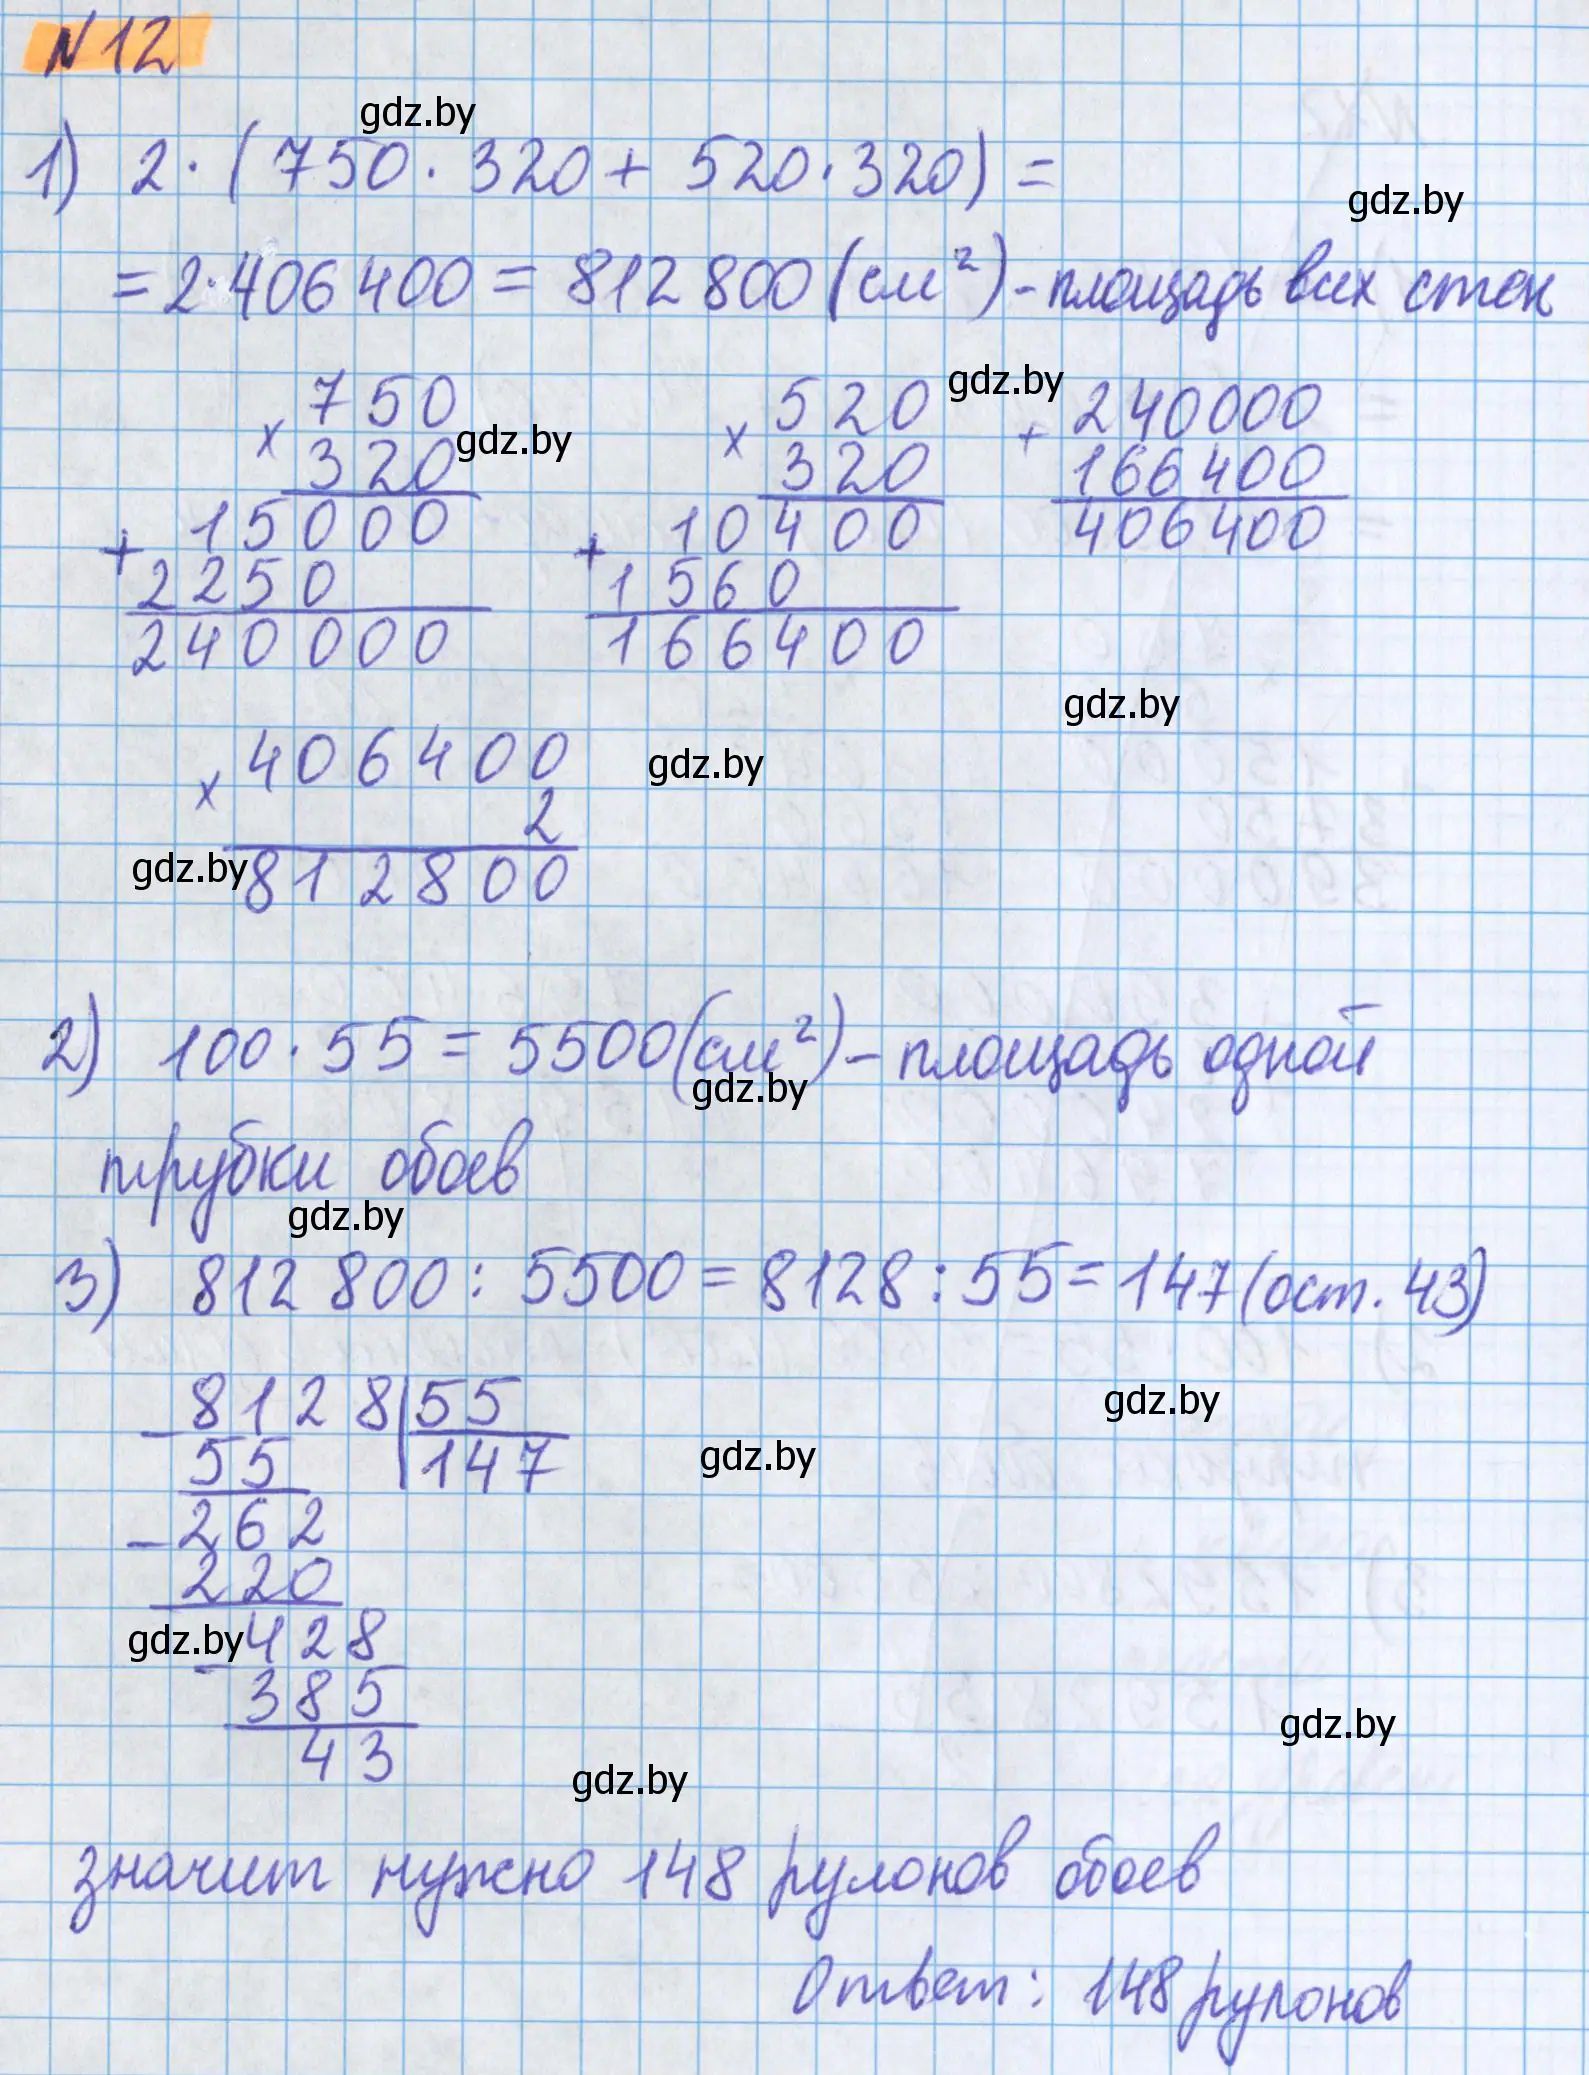 N 12
gdz.by
1) 2 · (750 · 320 + 520 · 320) =
gdz.by
= 2 · 406 400 = 812 800 (см²) - площадь всех стен
gdz.by
× 750
320
gdz.by
+ 15000
2250
240 000
× 520
320
+ 10400
1560
166400
+ 240000
166400
406400
gdz.by
× 406400
2
gdz.by
gdz.by
812800
2) 100 · 55 = 5500 (см²) - площадь одной
gdz.by
трубки обоев
gdz.by
3) 812 800 : 5500 = 8128 : 55 = 147 (ост. 43)
gdz.by
- 8128 | 55
55 147
gdz.by
- 262
220
gdz.by
- 428
385
43
gdz.by
gdz.by
значит нужно 148 рулонов обоев
Ответ: 148 рулонов